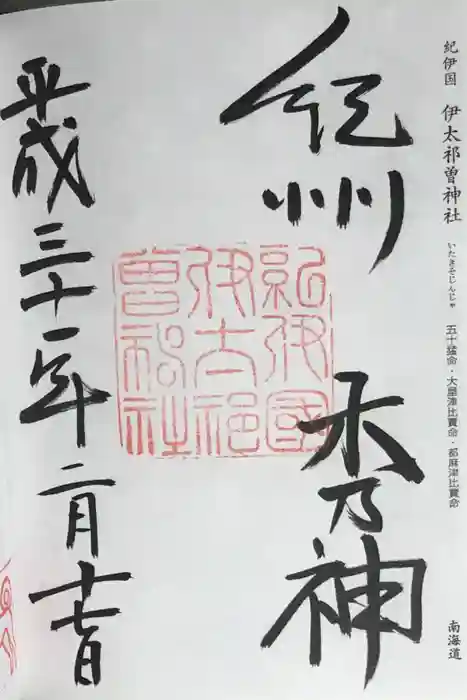 紀伊国 伊太祁曽神社 いたきそじんじゃ 五十猛命・大屋津比賣命・都麻津比賣命 南海道
紀州 木乃神
紀伊國
伊太祁
曽神社
平成三十一年二月十七日